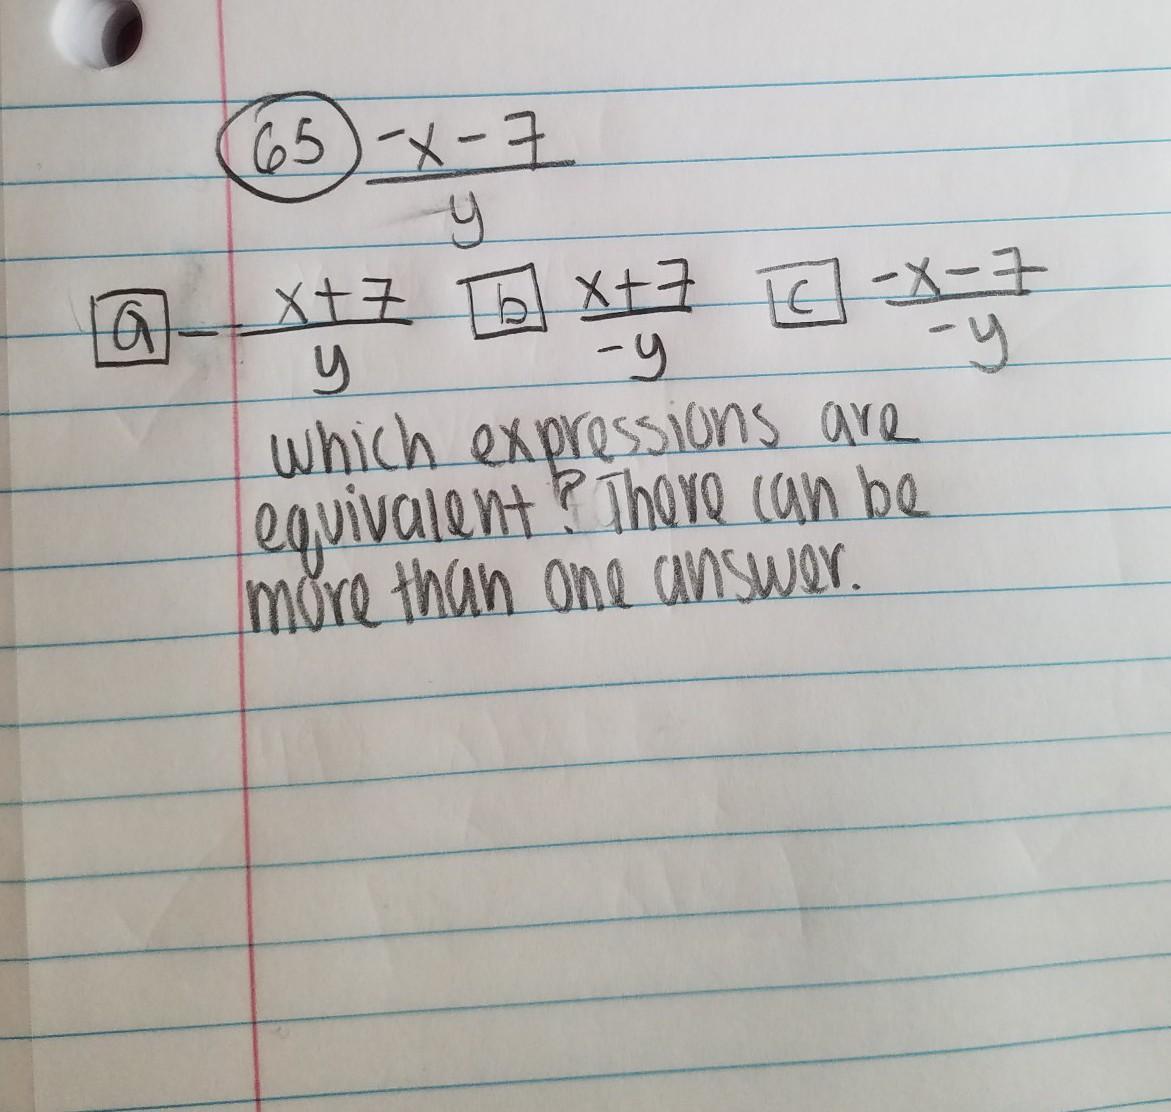 65 -x-7
y
a - x+7 b x+7 c -x-7
y -y -y
which expressions are
equivalent? There can be
more than one answer.